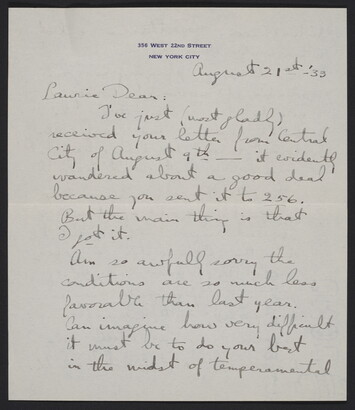 358 WEST 22ND STREET
NEW YORK CITY
August 21st - '33
Laurie Dear:
I've just (most gladly)
received your letter from Central
City of August 9th — it evidently
wandered about a good deal
because you sent it to 256.
But the main thing is that
I got it.
Am so awfully sorry the
conditions are so much less
favorable than last year.
Can imagine how very difficult
it must be to do your best
in the midst of temperamental